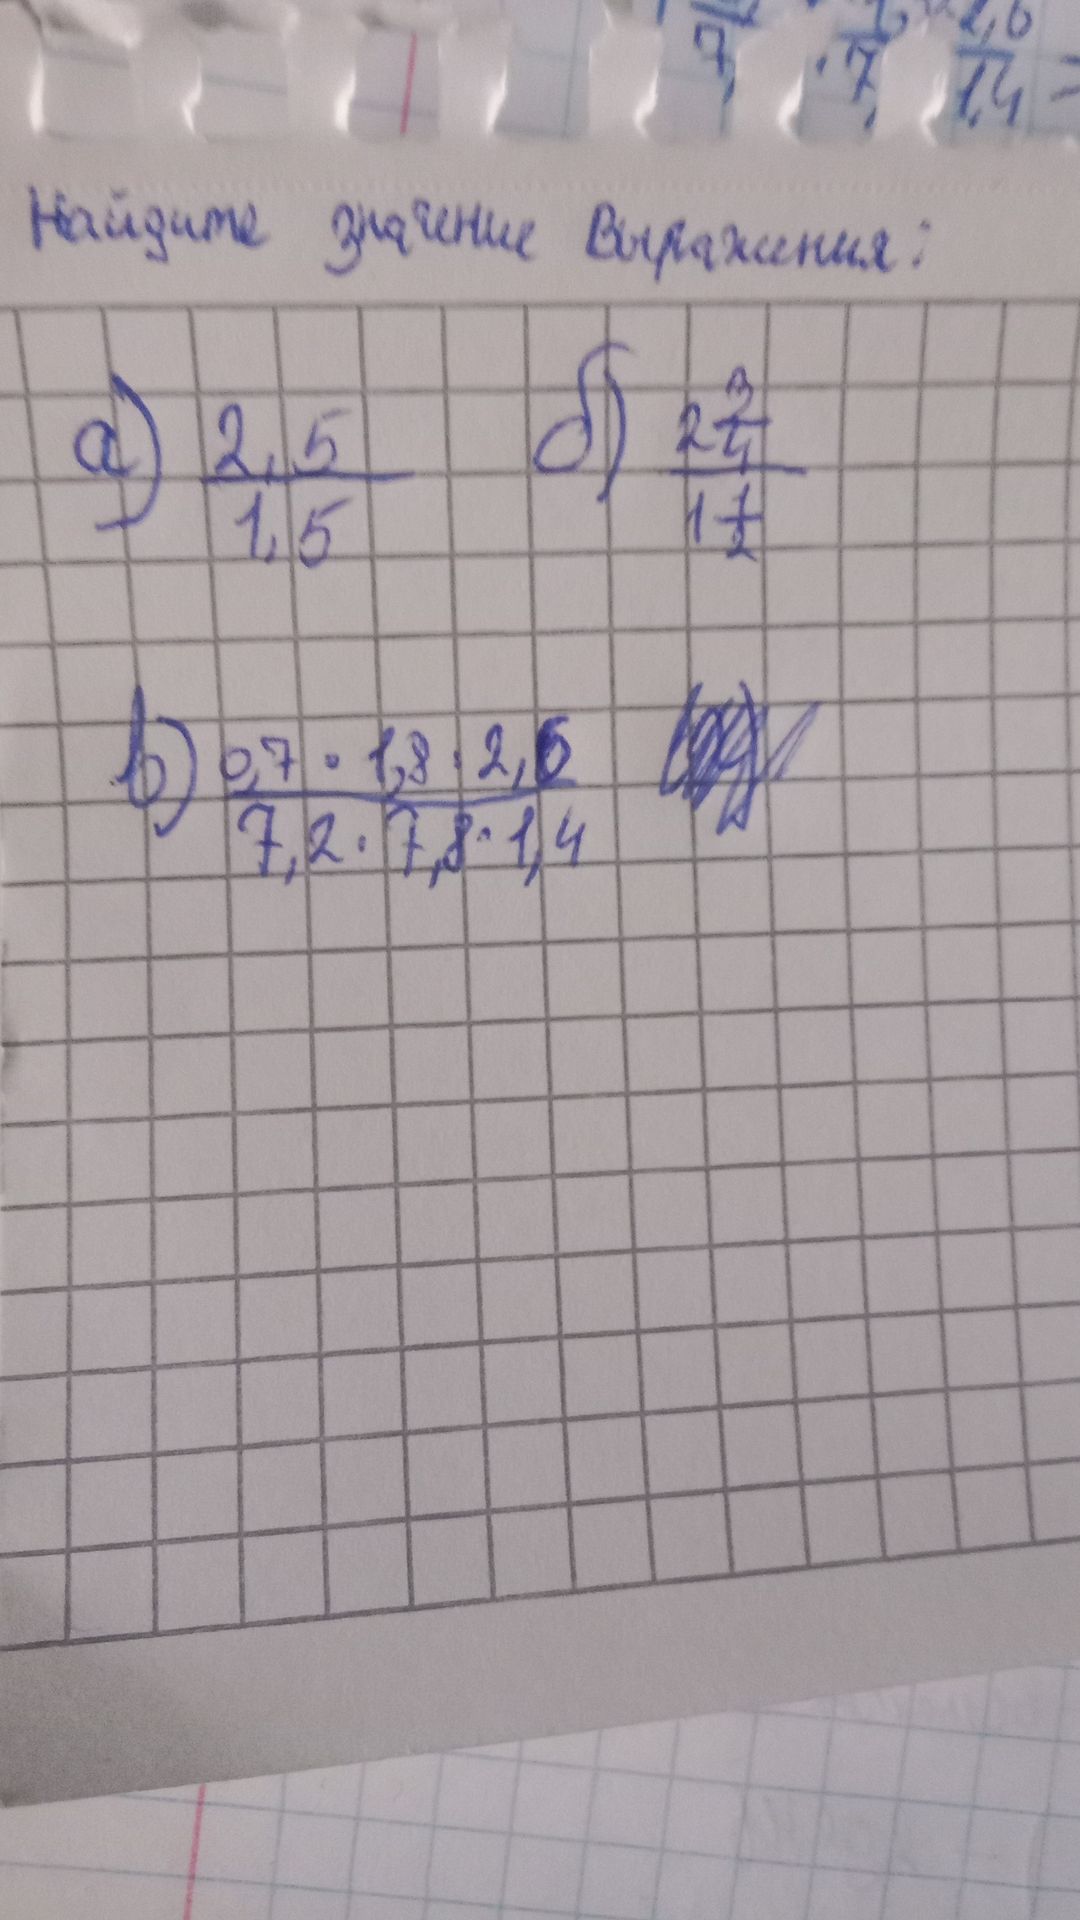 7, · 7, 2,6
1,4 =
Найдите значение выражения:
а) 2,5 б) 2 3/4
1,5 1 1/2
в) 0,7 · 1,8 · 2,6
7,2 · 7,8 · 1,4